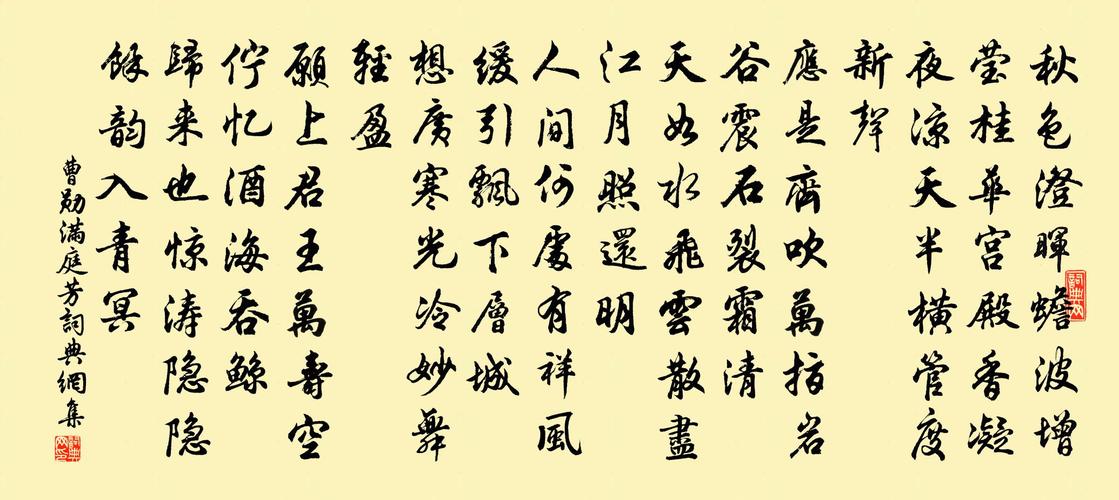 秋色澄暉蟾波增
莹桂華宫殿香凝
夜凉天半橫管度
新聲
應是齊吹萬指岩
谷震石裂霜清
天如水飛雲散盡
江月照還明
人间何處有祥風
缓引飄下層城
想廣寒光冷妙舞
輕盈
願上君王萬壽空
佇忆酒海吞鲸
歸来也惊涛隐隐
餘韵入青冥
曹勛满庭芳詞典網集